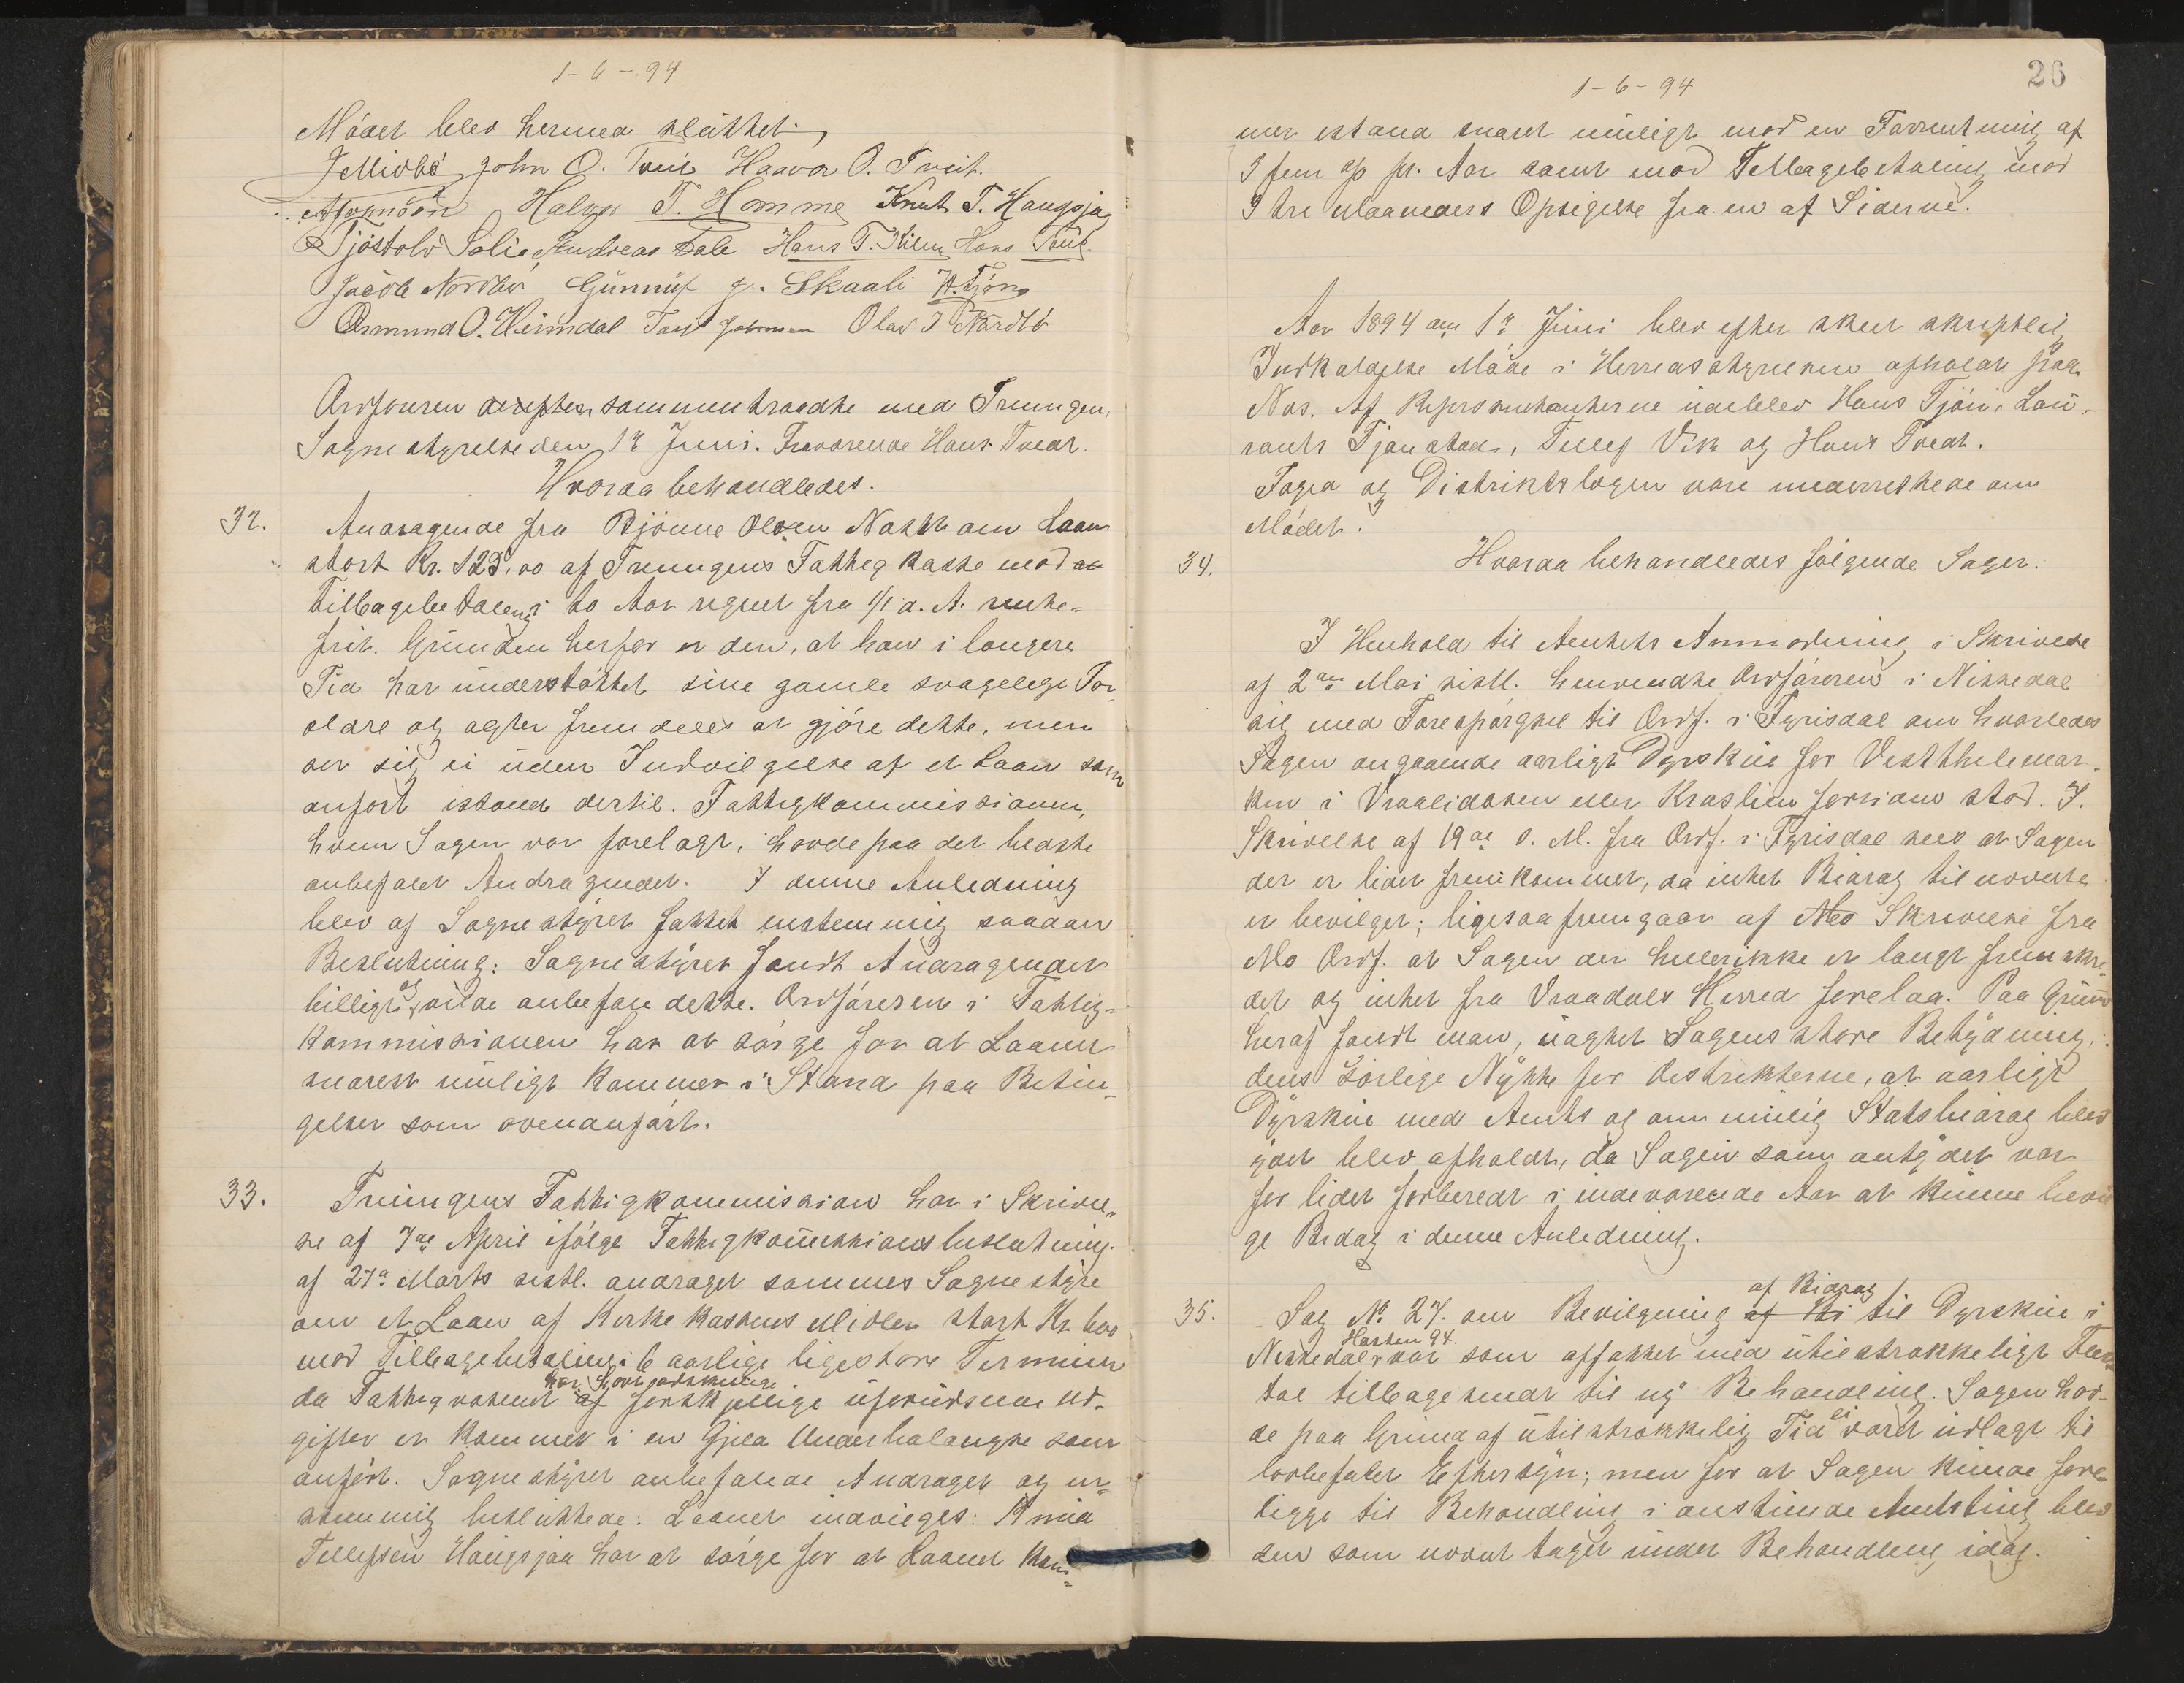 1-6-94
Mödet blev hermed sluttet.
J Midbö John O. Tveit Haavor O. Tveit.
Halvor T. Homme Knut T. Haugsjaa
Tjöstolv Solie Andreas Fale Hans T. Kilen Hans Tveit.
Jacob Nordbö Gunnuf J. Skaali H. Tjönn
Osmund O. Heimdal Johnsen Olav J Nordbö
Ordföreren derefter sammentraadte med Treungens
Sognestyrelse den 1ste Juni. Fraværende Hans Tvedt.
Hvorda behandledes.
32. Andragende fra Björne Olsen om Laan
stort Kr. 125,00 af Treungens Fattigkasse mod
Tilbagebetaling i to Aar regnet fra 1/1 d. A. rente=
frit. Grunden herfor er den, at han i længere
Tid har understöttet sine gamle svagelege For-
ældre og agter fremdeles at gjöre dette, men
ser sig ei uden Indvilgelse af et Laan som
anfört istand dertil. Fattigkommissionen,
hvem Sagen var forelagt, havde paa det bedste
anbefalet Andragendet. I denne Anledning
blev af Sognestyret fattet enstemmig saadan
Beslutning: Sognestyret fandt Andragendet
billigt og vilde anbefale dette. Ordföreren i Fattig-
kommissionen har at sörge for at Laanet
snarest muligt kommer i Stand paa Betin-
gelser som ovenanfört.
33. Treungens Fattigkommission har i Skrivel-
se af 7de April ifölge Fattigkommissionsbeslutning
af 27de Marts sistl. andraget sammes Sognestyre
om et Laan af Kirkekassens Midler stort Kr. 600
mod Tilbagebetaling i 6 aarlige ligestore Terminer
da Fattigvæsenet af forskjellige uforudseede Ud-
gifter er kommet i en Gjeld Underbalangse som
anfört. Sognestyret anbefalede Andraget og en-
stemmig besluttede: Laanet indvilges: Knud
Tellefsen Haugsjaa har at sörge for at Laanet kom=
26
1-6-94
mer istand snarest muligt mod en Forrentning af
5 fem % pr. Aar samt mod Tilbagebetaling mod
3 tre Maaneders Opsigelse fra en af Siderne.
Aar 1894 den 1ste Juni blev efter skeet skriftlig
Indkaldelse Möde i Herredsstyrelsen afholdt paa
Nes. Af Repræsentanterne udeblev Hans Tjönn, Lau-
rants Tjanstad, Tellef Vik og Hans Tvedt.
Foged og Distriktslægen vare underrettede om
Mödet.
34. Hvorda behandledes fölgende Sager.
I Henhold til Amtets Anmodning i Skrivelse
af 2den Mai sistl. henvendte Ordföreren i Nissedal
sig med Forespörgsel til Ordf. i Fyrisdal om hvorledes
Sagen angaaende aarligt Dyrskue for Vestthelemar-
ken i Vraalidsen eller Kraslien forsiden stod. I
Skrivelse af 19de s. M. fra Ordf. i Fyrisdal sees at Sagen
der er lidet fremkommet, da intet Bidrag til nævnte
er bevilget; ligesaa fremgaar af Mo Skrivelse fra
Mo Ordf. at Sagen der hellerikke er langt fremskre-
det og intet fra Vraadals Herred forelaa. Paa Grund
heraf fandt man, uagtet Sagens store Betydning,
dens særlige Nytte for Destrikterne, at aarligt
Dyrskue med Amts og om mulig Statsbidrag blev
blev afholdt, da Sagen som antydet var
for lidet forberedt i indeværende Aar at kunne bevil
ge Bidag i denne Anledning.
35. Sag No 27. om Bevilgning af Bi af Bidrag til Dyrskue i
Nissedal Hösten 94. var som affattet med utilstrækkeligt Fler-
tal tilbagesendt til ny Behandling. Sagen hav-
de paa Grund af utilstrækkelig Tid ei været udlagt til
lovbefalet Eftersyn; men for at Sagen kunde fore-
ligge til Behandling i anstundede Amtsting blev
den som nævnt taget under Behandling idag.